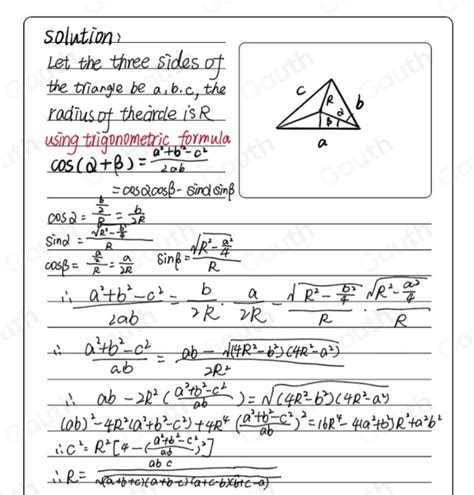 solution:
Let the three sides of
the triangle be a, b, c, the
radius of the circle is R
using trigonometric formula
cos(α+β) = (a²+b²-c²)/(2ab)
= cosαcosβ - sinα sinβ
cosα = (b/2)/R = b/(2R)
sinα = √(R²-b²/4)/R
cosβ = (a/2)/R = a/(2R) sinβ = √(R²-a²/4)/R
∴ (a²+b²-c²)/(2ab) = b/(2R) · a/(2R) - √(R²-b²/4)/R · √(R²-a²/4)/R
∴ (a²+b²-c²)/(ab) = (ab - √((4R²-b²)(4R²-a²)))/(2R²)
∴ ab - 2R²((a²+b²-c²)/(ab)) = √((4R²-b²)(4R²-a²))
(ab)² - 4R²(a²+b²-c²) + 4R⁴((a²+b²-c²)/(ab))² = 16R⁴ - 4(a²+b²)R² + a²b²
∴ c² = R²[4-((a²+b²-c²)/(ab))²]
∴ R = abc/√((a+b+c)(a+b-c)(a+c-b)(b+c-a))
c
R
b
α
β
a
Gauth